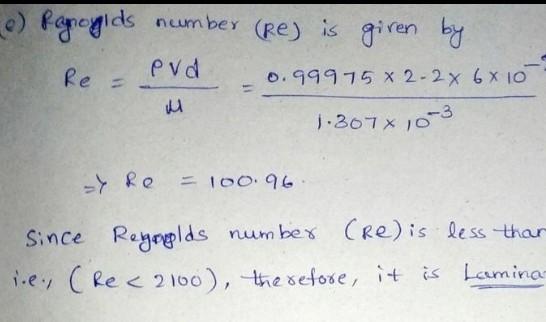 (e) Reynoylds number (Re) is given by
Re = ρvd / μ = 0.99975 × 2.2 × 6 × 10 / 1.307 × 10⁻³
=> Re = 100.96.
Since Reynolds number (Re) is less than
i.e., (Re < 2100), therefore, it is Lamina